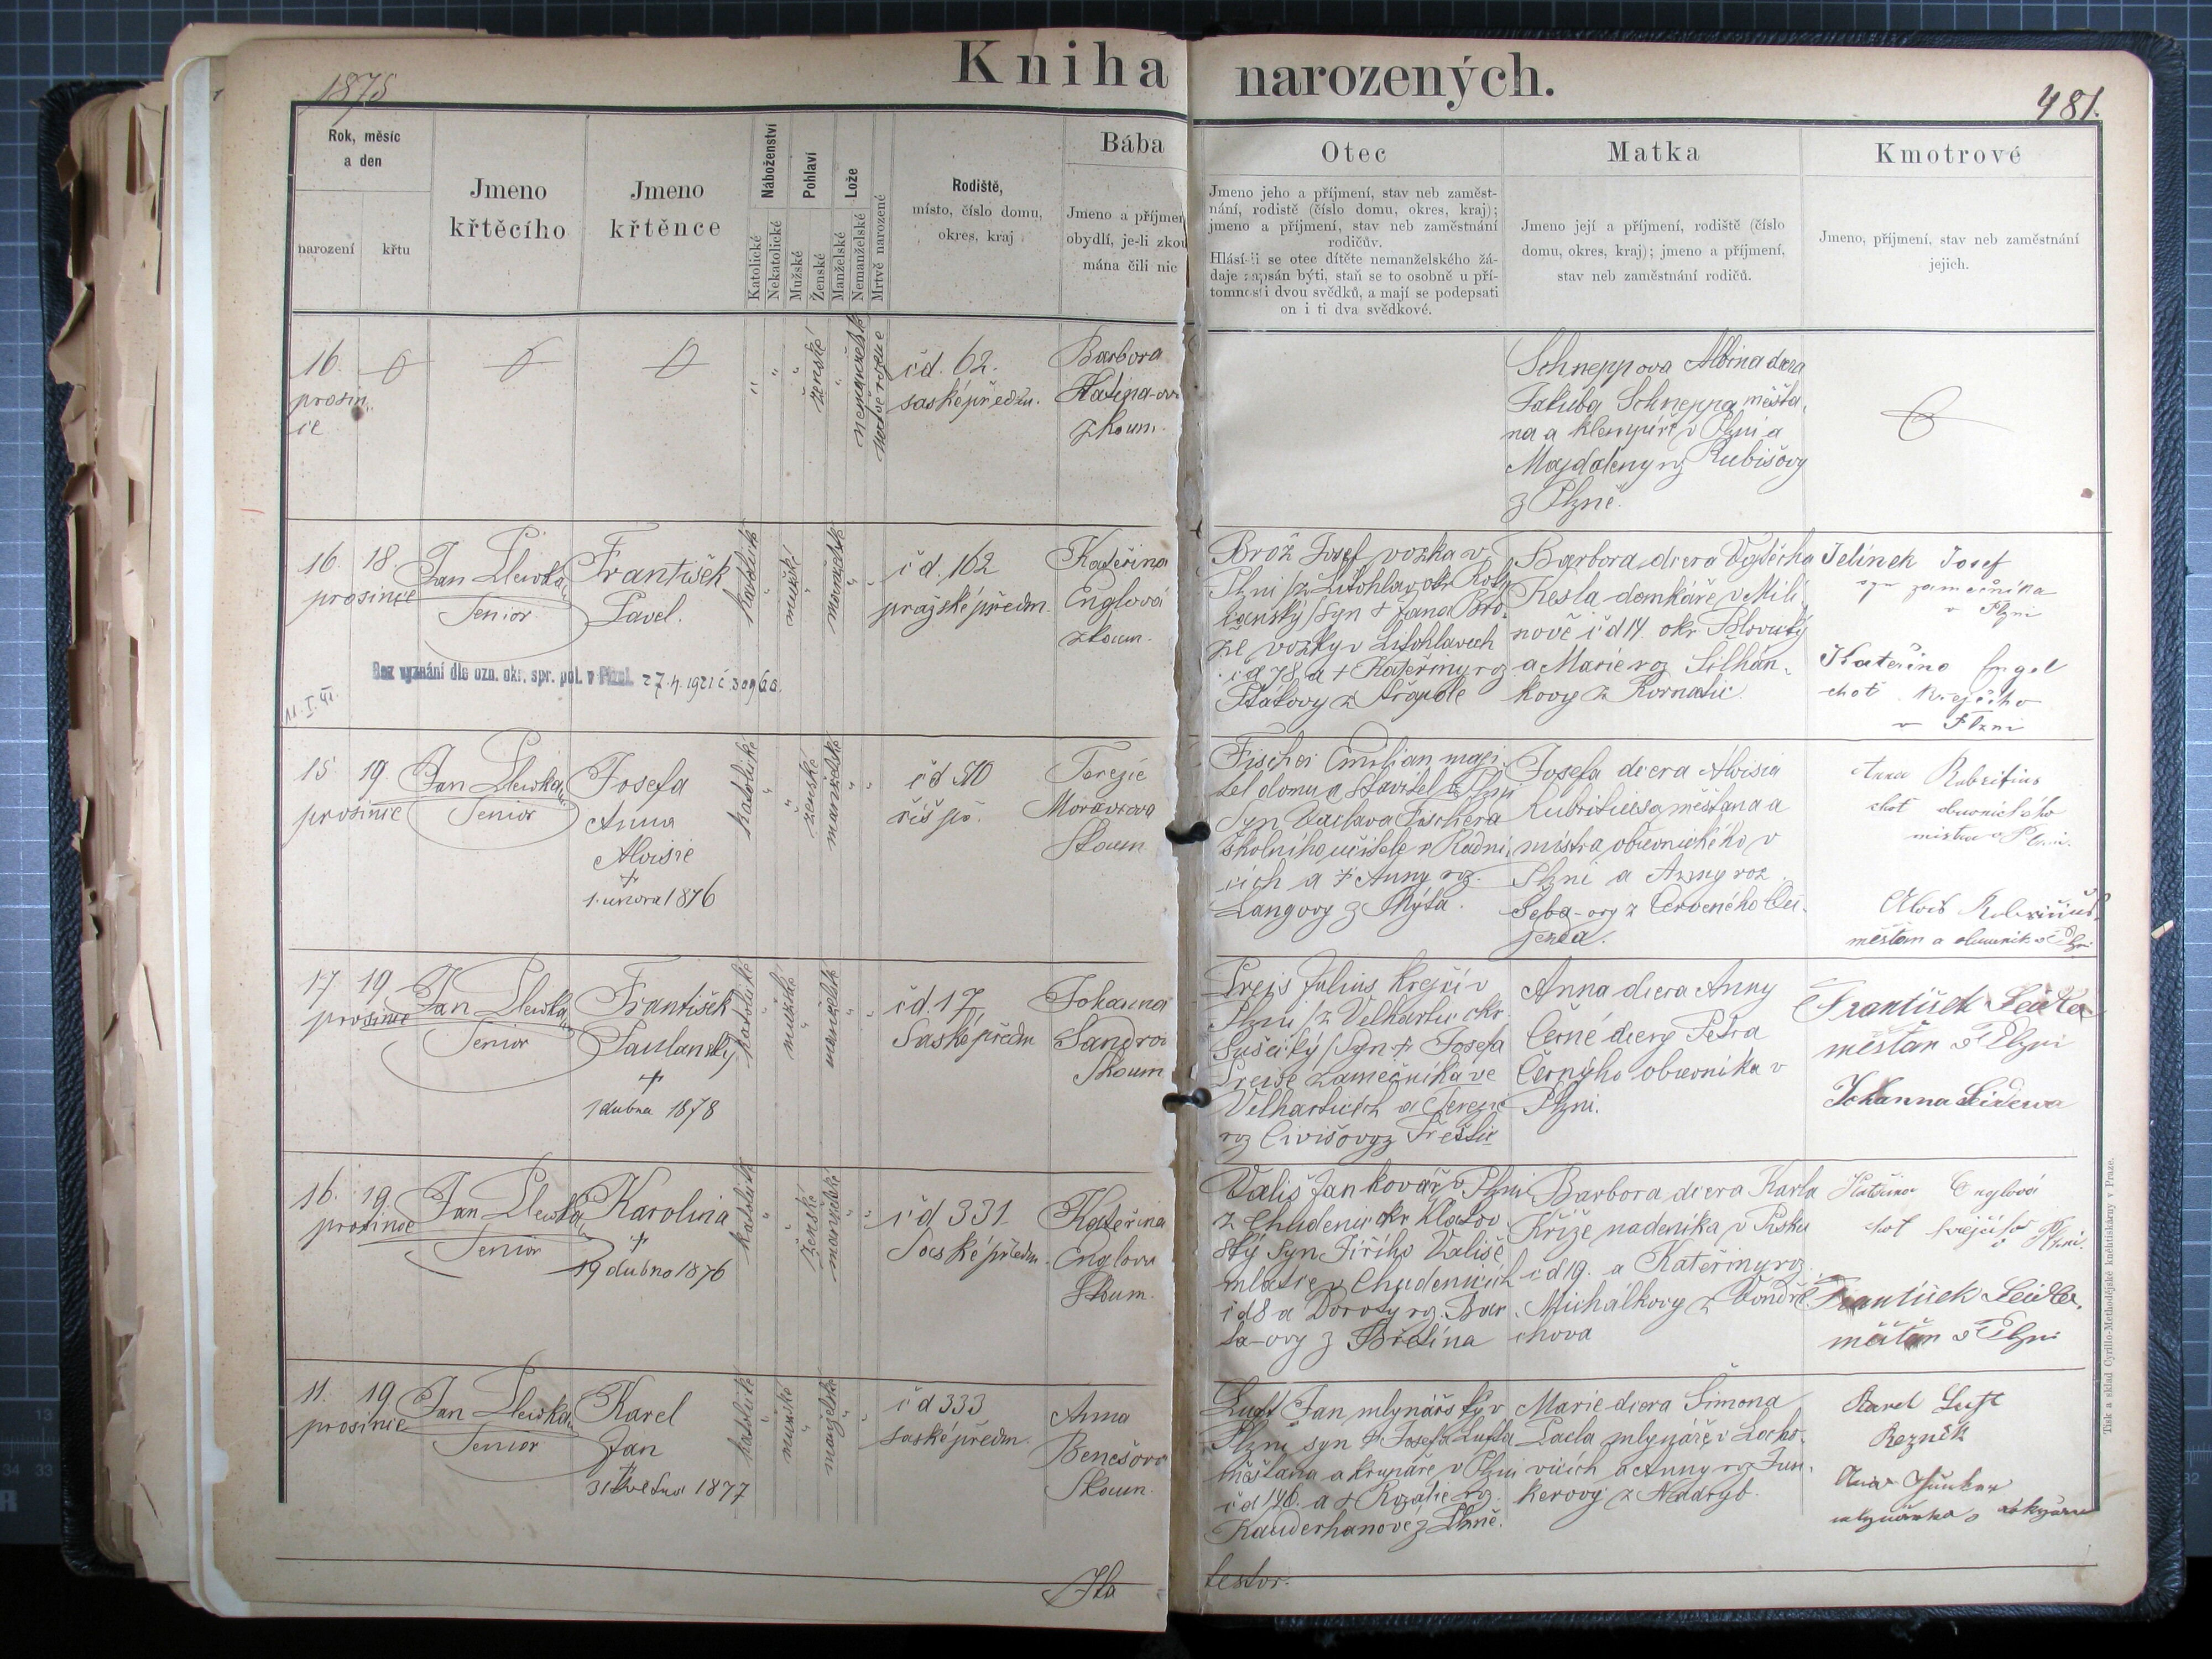 Kniha narozených.
1875
481.
Rok, měsíc
a den
narození
křtu
Jmeno
křtěcího
Jmeno
křtěnce
Náboženství
Katolické
Nekatolické
Pohlaví
Mužské
Ženské
Lože
Manželské
Nemanželské
Mrtvě narozené
Rodiště,
místo, číslo domu,
okres, kraj
Bába
Jmeno a příjmen
obydlí, je-li zkou
mána čili nic
Otec
Jmeno jeho a příjmení, stav neb zaměst-
nání, rodistě (číslo domu, okres, kraj);
jmeno a příjmení, stav neb zaměstnání
rodičův.
Hlásí-li se otec dítěte nemanželského žá-
daje zapsán býti, staň se to osobně u pří-
tomnosti dvou svědků, a mají se podepsati
on i ti dva svědkové.
Matka
Jmeno její a příjmení, rodiště (číslo
domu, okres, kraj); jmeno a příjmení,
stav neb zaměstnání rodičů.
Kmotrové
Jmeno, příjmení, stav neb zaměstnání
jejich.
16.
prosin
ce
ženské
nemanželské
mrtvě rozené
čd. 62.
saské předm.
Barbora
zkoum.
Schneppova Albina dcera
Jakuba Schneppa měšťa
na a klempíře v Plzni a
Majdaleny roz Kubišovy
z Plzně.
16. 18.
prosince
Jan Senior
František
Pavel.
katolické
mužské
manželské
čd. 162
pražské předm.
Kateřina
Englová
zkoum.
Bez vyznání dle ozn. okr. spr. pol. v Plzni. 27.4.1921 č 30960.
Brož Josef vozka v
Plzni /z Litohlav okr Roky
canský/ syn + Jana Bro
že vozky v Litohlavech
čd 78 a + Kateřiny roz
Ptákovy z
Barbora dcera Vojtěcha
Kesla domkáře v Mili
nově čd 14. okr. Blovický
a Marie roz Silhán
kovy z Kornatic
Jelínek Josef
syn zámečníka
v Plzni
Kateřina Engel
choť krejčího
v Plzni
15. 19.
prosince
Jan Senior
Josefa
Anna
Aloisie
+
1. února 1876
katolické
ženské
manželské
čd
říš př.
Terezie
Moravcova
Zkoum
Fischer Emilian maji
tel domu a stavitel v Plzni
syn Vaclava Fischera
školního učitele v Radni
cich a + Anny roz.
Langovy z Mýta.
Josefa dcera Aloisia
Kubritiusa měšťana a
mistra obuvnického v
Plzni a Anny roz.
Šeba-ovy z Červeného Ou
jezda.
Anna
choť obuvnického
mistra v Plzni.
Alois
měšťan a obuvník v Plzni
17 19
prosince
Jan Senior
František
Paulanský
+
1 dubna 1878
katolické
mužské
manželské
čd. 17
Saské předm
Johanna
Zkoum
Preis Julius krejčí v
Plzni /z Velhartic okr
Sušický/ syn + Josefa
Preise zámečníka ve
Velharticích a Terezie
roz Civišovy z Přeštic
Anna dcera Anny
Černé dcery Petra
Černýho obuvníka v
Plzni.
František
měšťan v Plzni
Johanna
16. 19.
prosince
Jan Senior
Karolina
+
19 dubna 1876
katolické
ženské
manželské
čd 331
Saské předm.
Kateřina
Englova
Zkoum.
Vališ Jan kovář v Plzni
z Chudenic okr Klatov
ský syn Jiřího Vališe
mlatce v Chudenicích
čd 8 a Doroty roz. Bar
ta-ovy z
Barbora dcera Karla
Kříže nadeníka v Písku
čd 19. a Kateřiny roz
Michálkovy z Vondři
chova
Kateřina Englová
choť krejčího v Plzni.
František
měšťan v Plzni
11. 19.
prosince
Jan Senior
Karel
Jan
+
31 května 1877
katolické
mužské
manželské
čd 333
saské předm.
Anna
Benešova
Zkoum.
Luft Jan mlynářský v
Plzni syn + Josefa Lufta
měšťana a krupaře v Plzni
čd 146. a + Rozalie roz
z Plzně.
Marie dcera Šimona
Pacla mlynáře v Locho
vicích a Anny roz Jun
kerovy z Nadryb.
Karel Luft
Řezník
mlynářka
testor.
Tisk a sklad Cyrillo-Methodějské knihtiskárny v Praze.